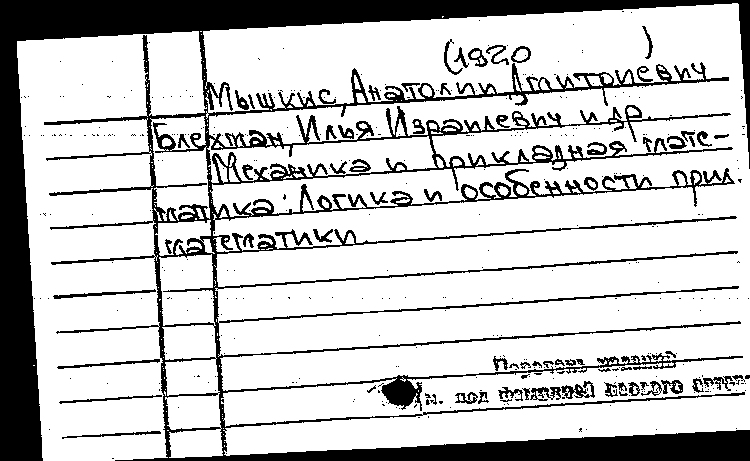 (1920 )
Мышкис, Анатолий Дмитриевич
Блехман, Илья Израилевич и др.
Механика и прикладная мате-
матика: Логика и особенности прил.
математики.
Перечень изданий
см. под фамилией первого автора